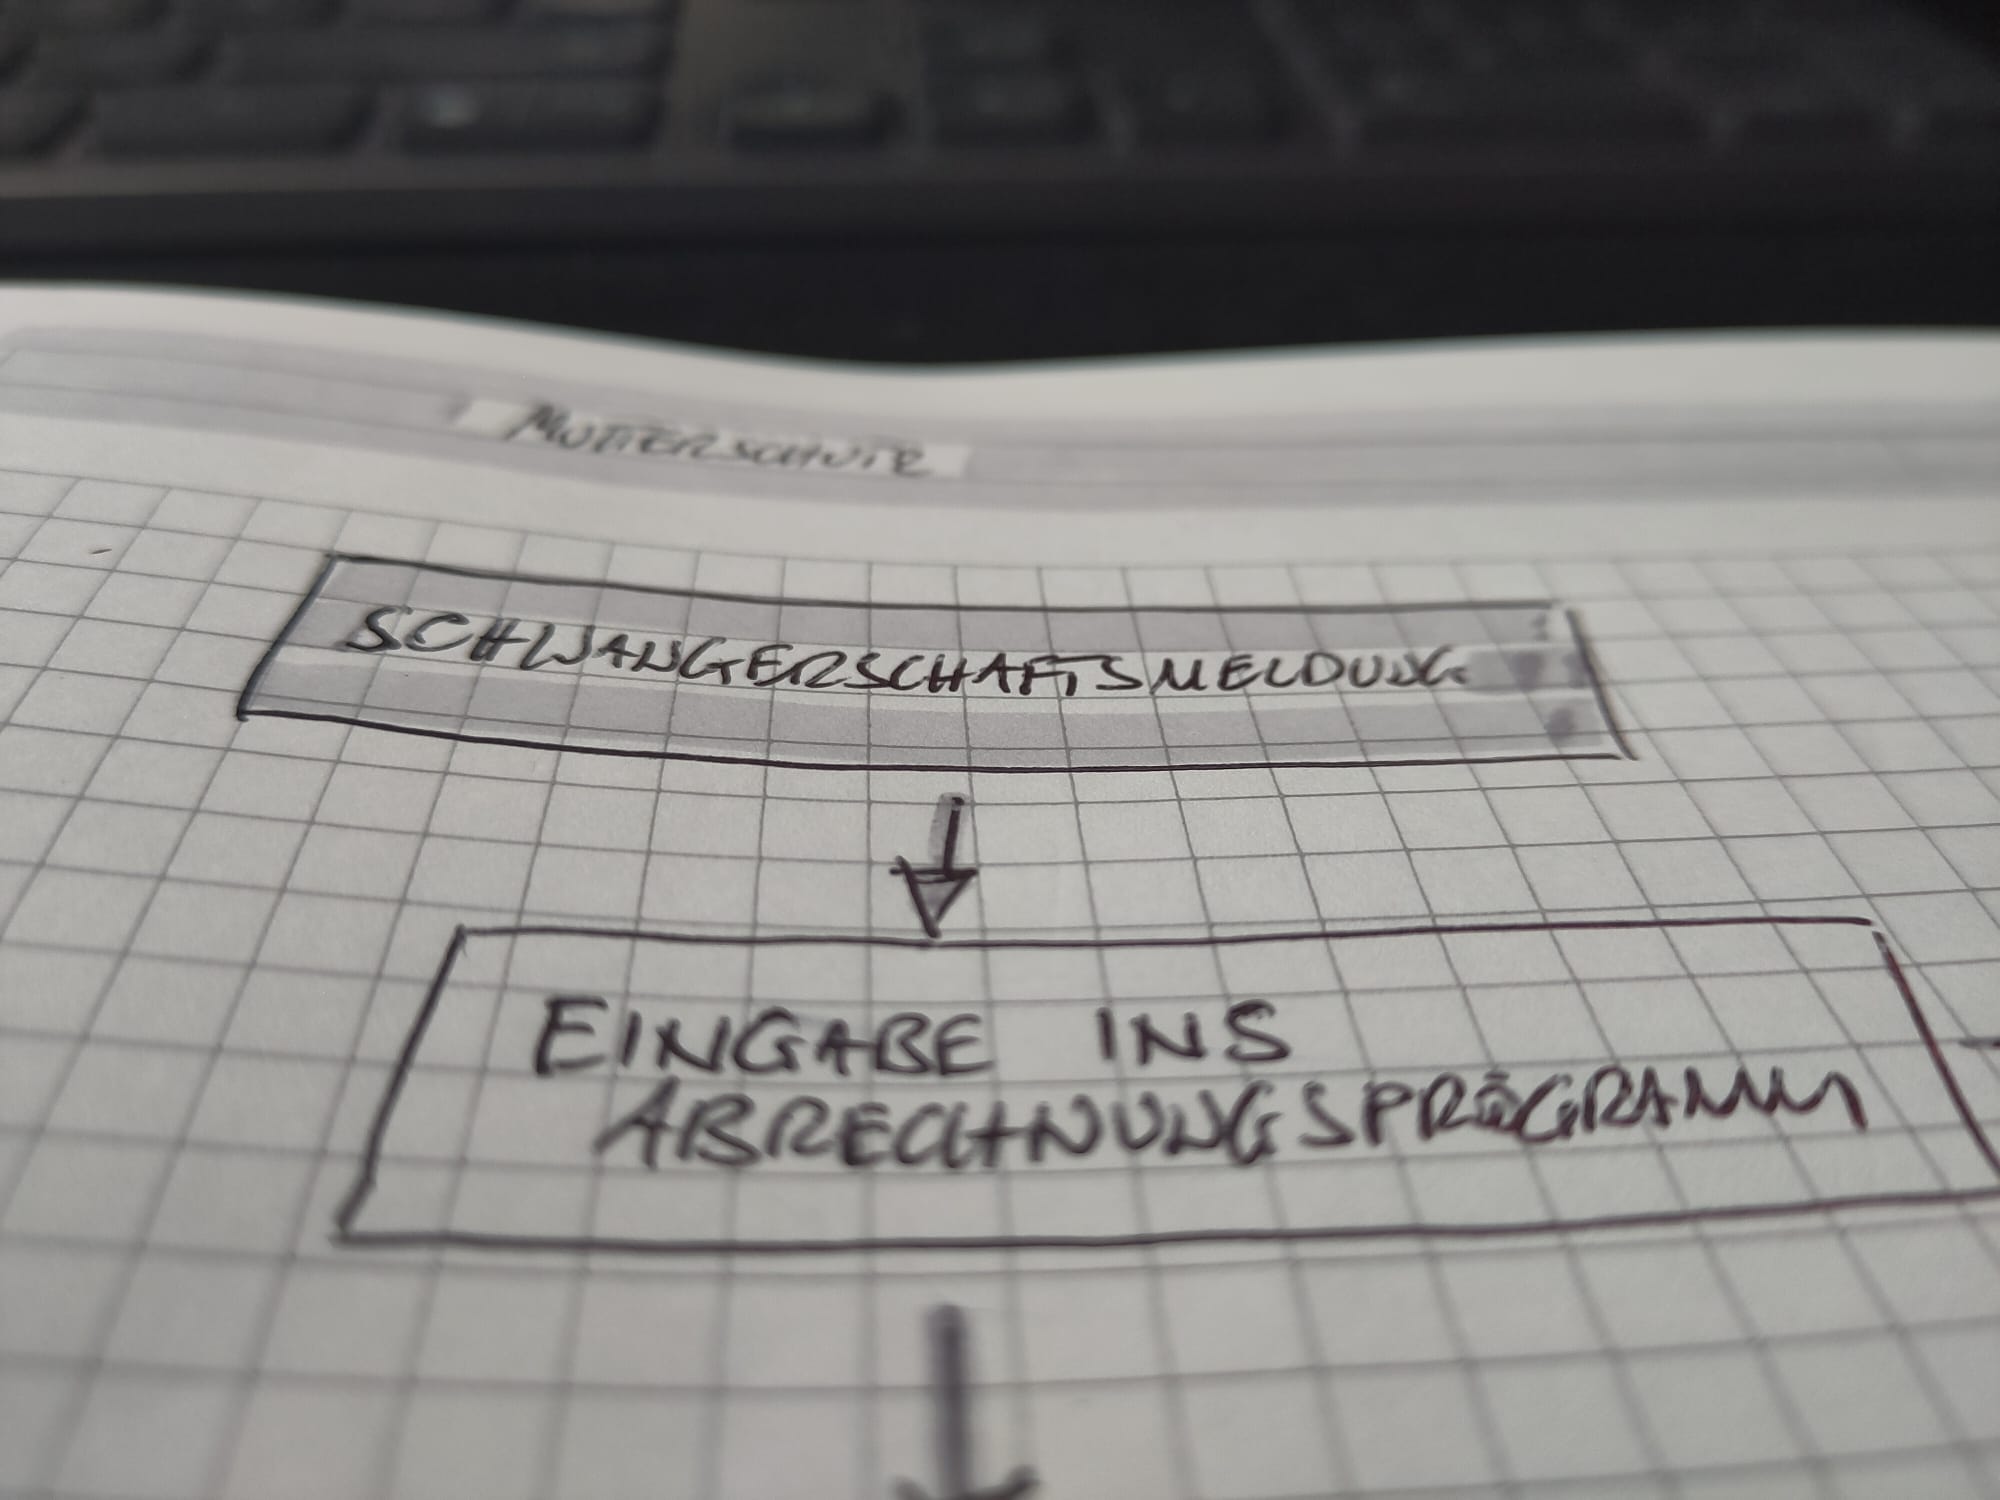 MUTTERSCHUTZ
SCHWANGERSCHAFTSMELDUNG
EINGABE INS
ABRECHNUNGSPROGRAMM